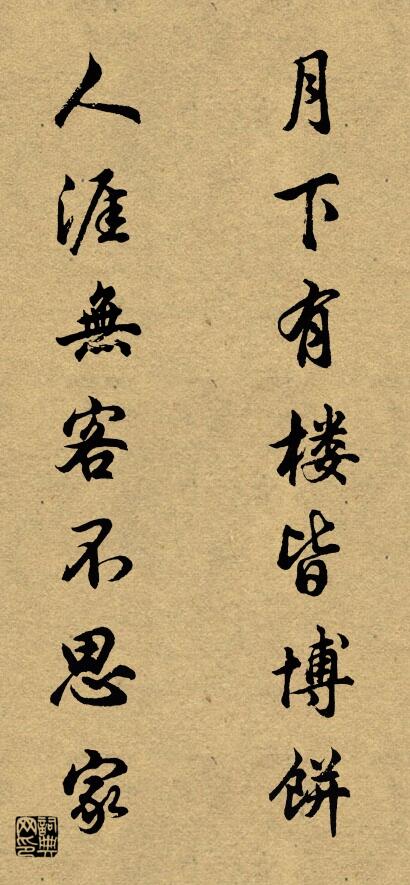 月下有楼皆博餅
人涯無客不思家
詞典网印